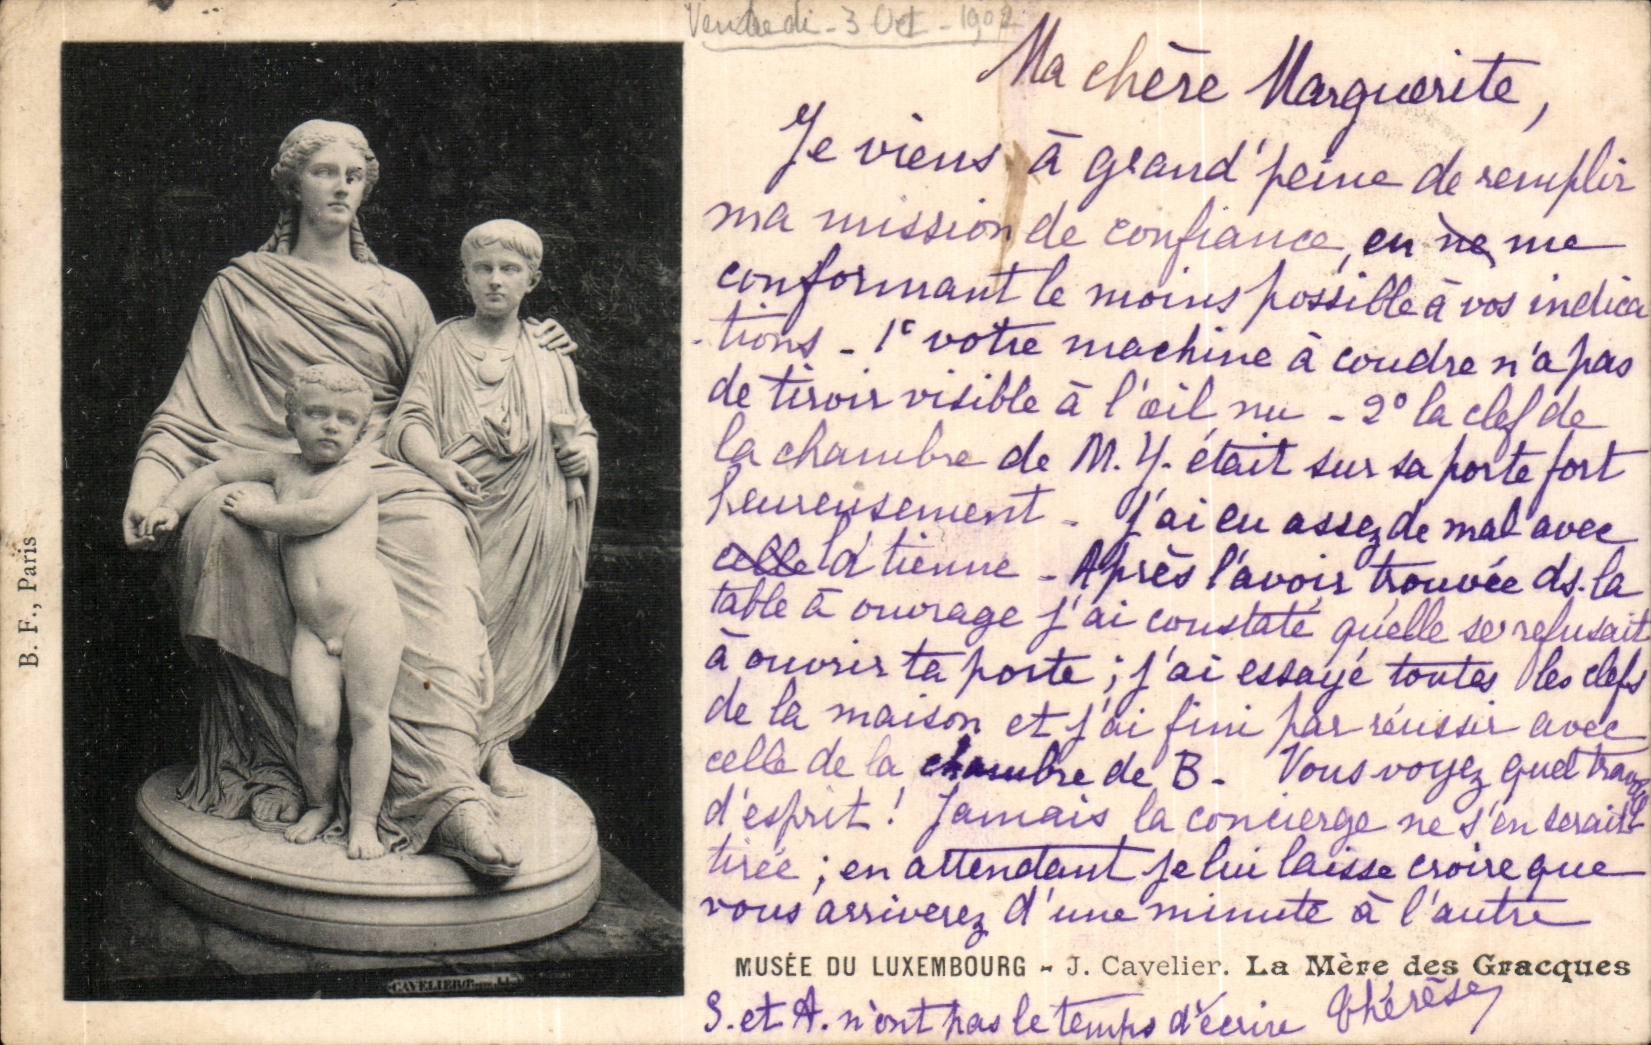 Vendredi - 3 Oct - 1902
Ma chère Marguerite,
Je viens à grand'peine de remplir
ma mission de confiance, en ne me
conformant le moins possible à vos indica
-tions - 1º votre machine à coudre n'a pas
de tiroir visible à l'œil nu - 2º la clef de
la chambre de M. Y. était sur sa porte fort
heureusement - J'ai eu assez de mal avec
celle la tienne - Après l'avoir trouvée ds. la
table à ouvrage j'ai constaté qu'elle se refusait
à ouvrir ta porte ; j'ai essayé toutes les clefs
de la maison et j'ai fini par réussir avec
celle de la chambre de B - Vous voyez quel
d'esprit ! Jamais la concierge ne s'en serait
tirée ; en attendant je lui laisse croire que
vous arriverez d'une minute à l'autre
MUSÉE DU LUXEMBOURG - J. Cavelier. La Mère des Gracques
S. et A. n'ont pas le temps d'écrire Thérèse
B. F., Paris
CAVELIER